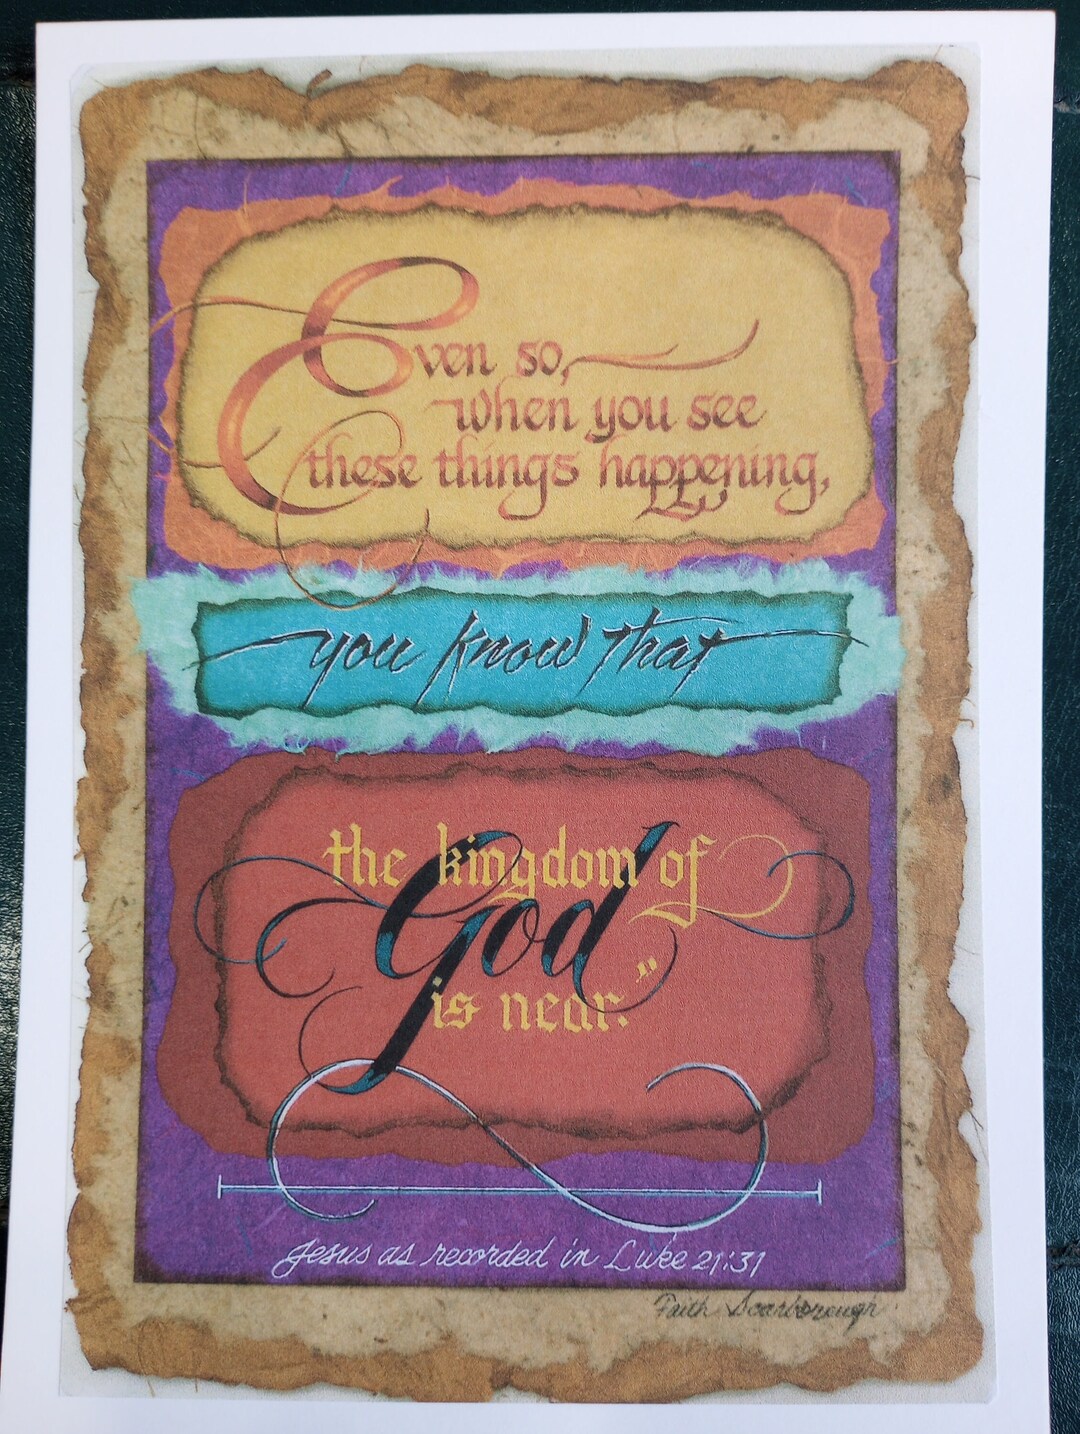 Even so,
when you see
these things happening,
you know that
the kingdom of
God
is near."
Jesus as recorded in Luke 21:31
Faith Scarborough